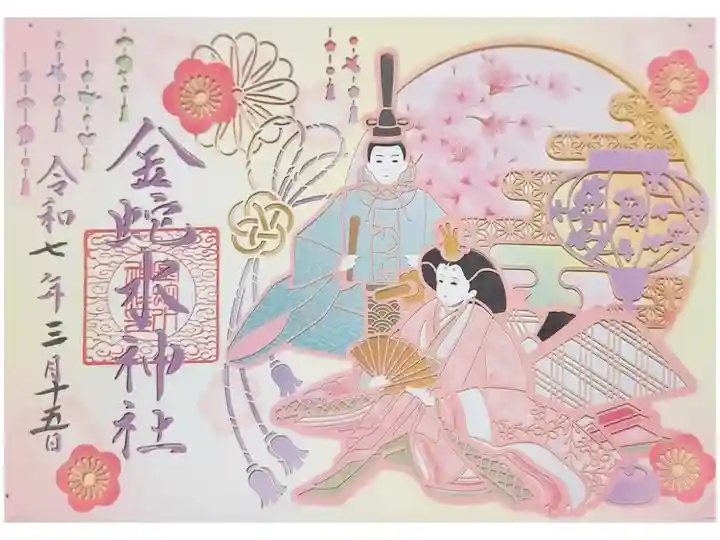 金蛇水神社
令和七年三月十五日